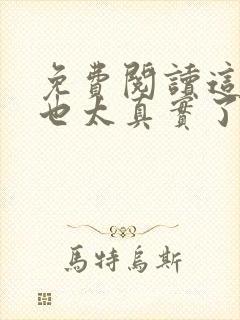 免費閱讀這
也太真實了
馬特烏斯